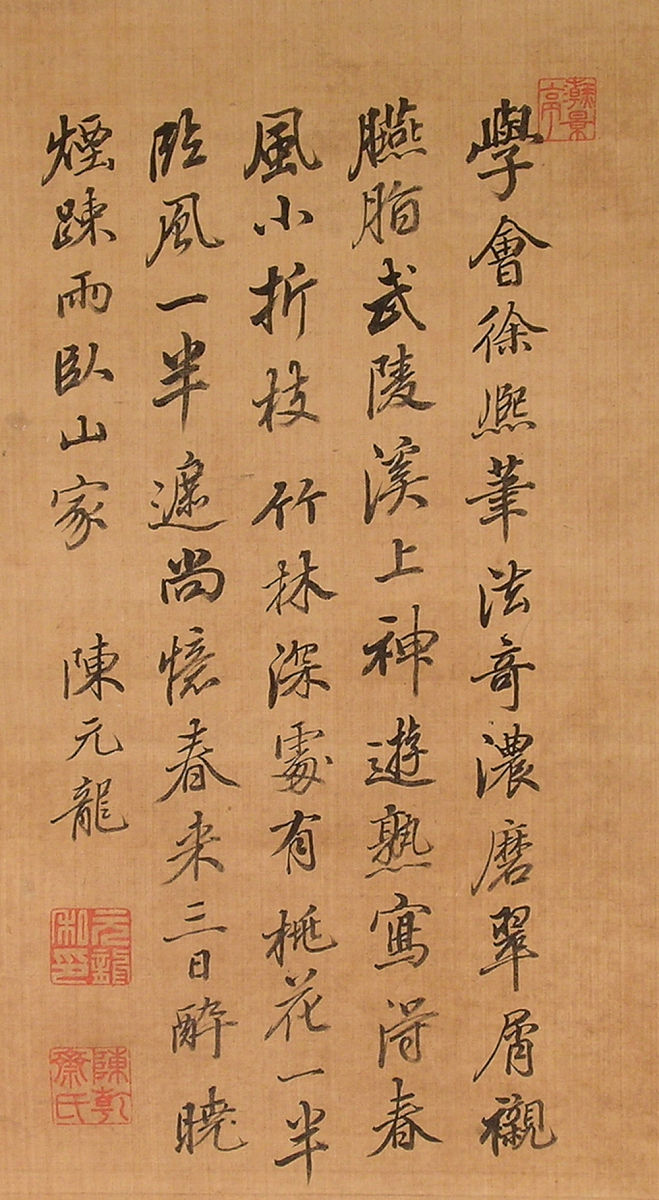 學會徐熙筆法奇濃磨翠屑襯
臙脂武陵溪上神遊熟寫得春
風小折枝竹林深處有桃花一半
臨風一半遮尚憶春来三日醉曉
煙踈雨臥山家 陳元龍
元龍私印
陳乾齋氏